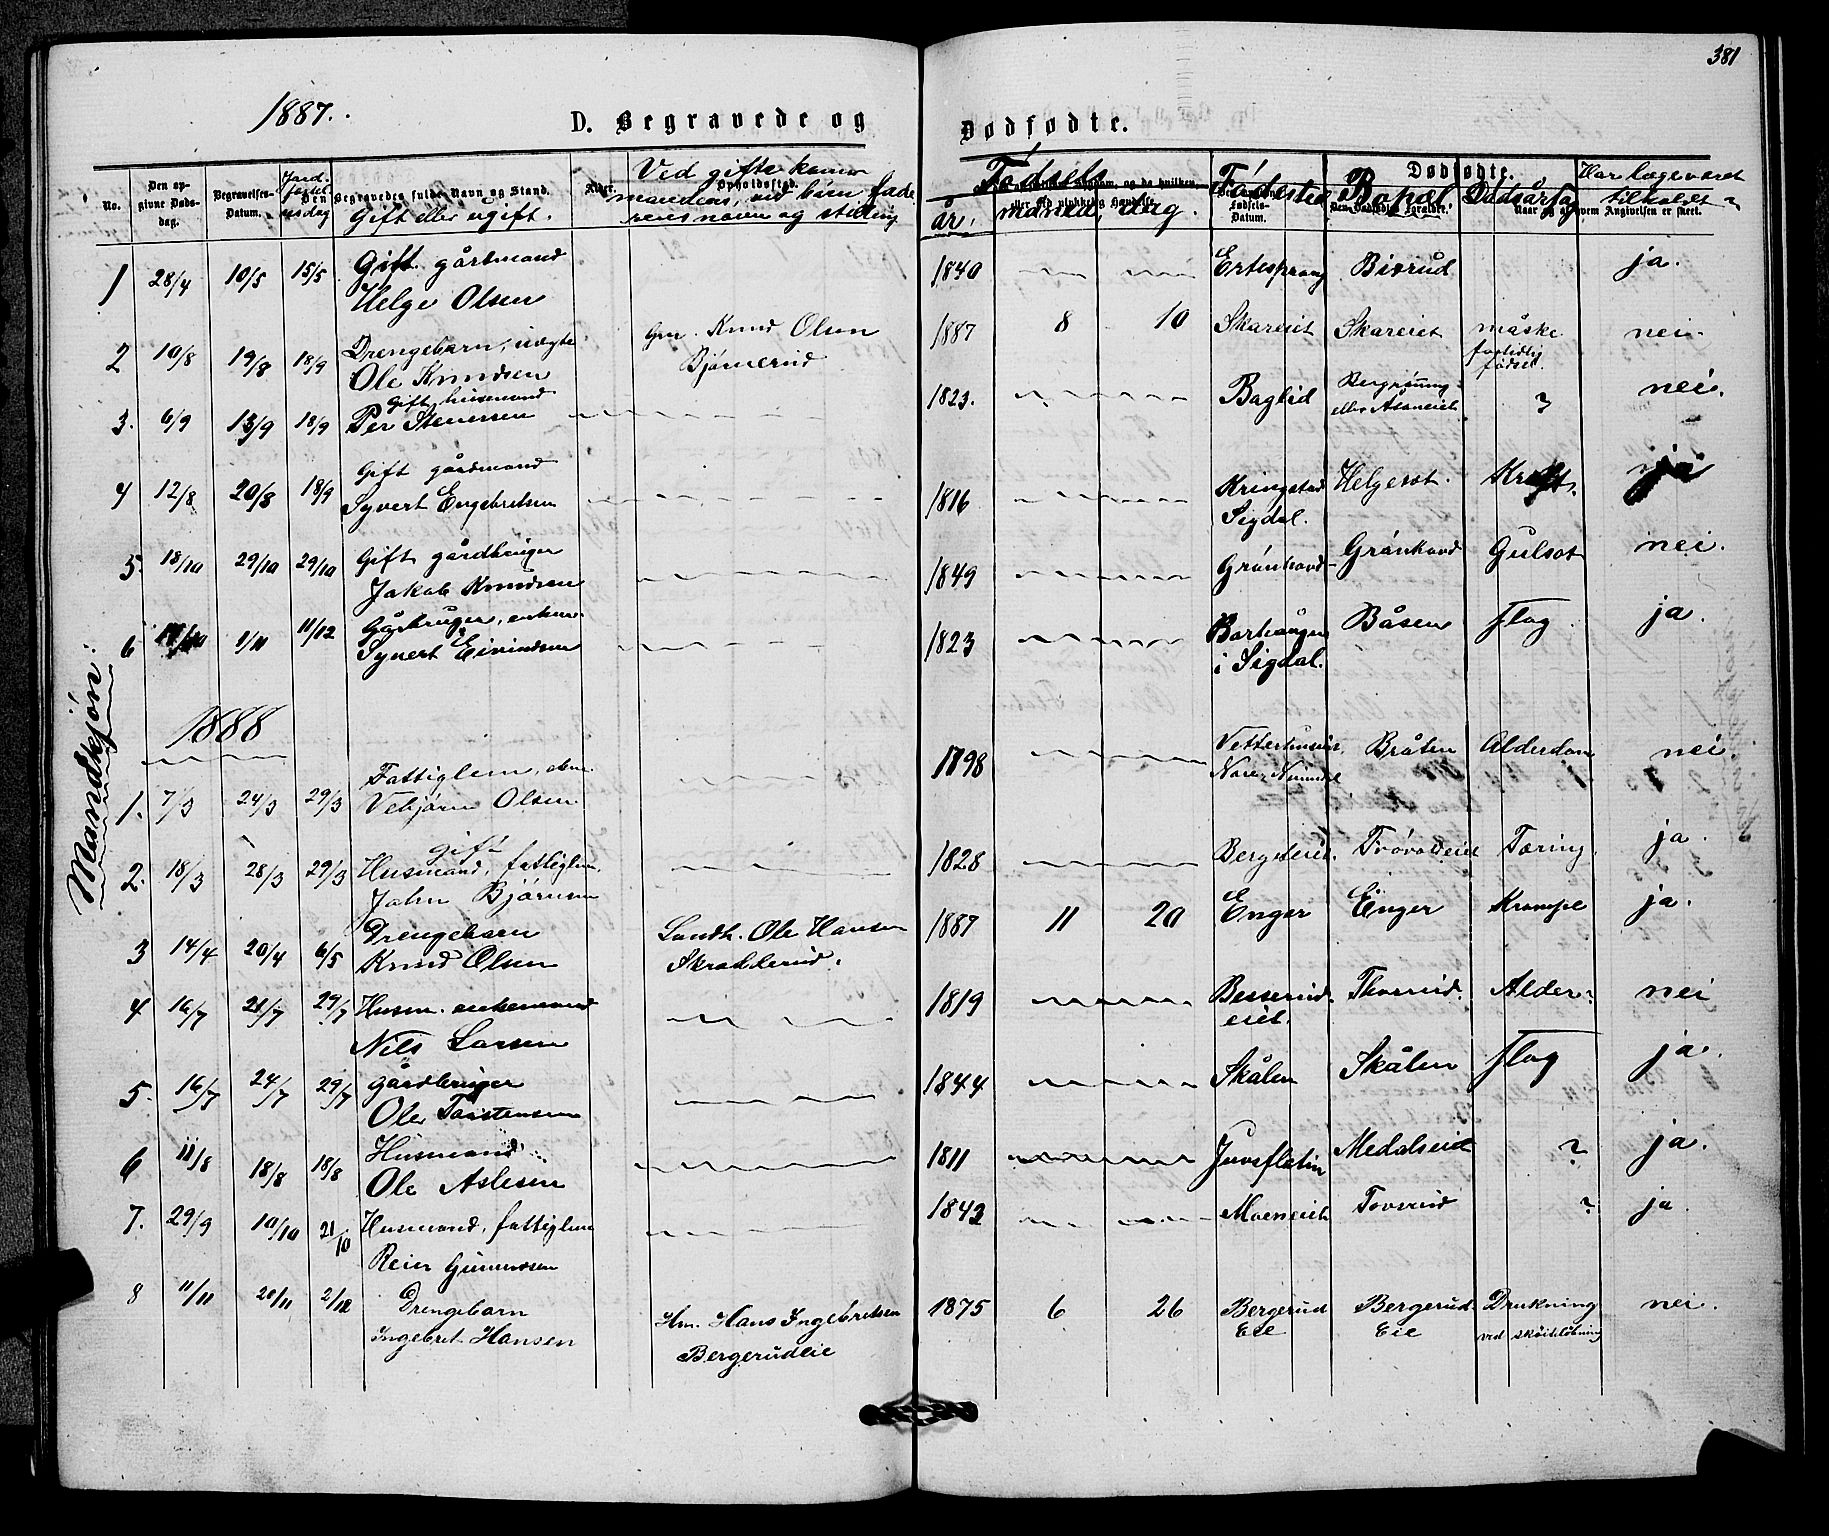 381
1887.
D. Begravede og Dødfødte.
No. Den opgivne Dødsdag. Begravelses-Datum. Jordfæstelsesdag Begravedes fulde Navn og Stand. Gift eller ugift. Alder. Opholdssted. Ved gifte konur mandens, ved børn faderens navn og stilling
Fødsels år, måned, dag. Fødested Bopæl Dødsårsag Har læge været tilkaldt?
Mandkjøn:
1 28/4 10/5 15/5 Gift gårdmand 1840 Ertesprang Bixrud ja.
Helge Olsen
2 10/8 19/8 18/9 Drengebarn, uægte Gm. Knud Olsen 1887 8 10 Skareiet Skareiet måske nei.
Ole Knudsen Bjørnerud fortidlig fødsel.
3. 6/9 13/9 18/9 Gift husmand 1823. Baglid Bergsung nei.
Per Stenersen eller Åsaneiet ?
4 12/8 20/8 18/9 Gift gårdmand 1816 Kringstad Helgeset. Kræft. ja
Syvert Engebretsen Sigdal.
5. 18/10 29/10 29/10 Gift gårdbruger 1849 Grønhovd Grønhovd Gulsot nei.
Jakob Knudsen
6 1/11 11/12 Gårbruger, enkem. 1823 Borhaugen Båsen Slag. ja.
Syvert Eivindsen i Sigdal.
1888
1. 7/3 24/3 29/3 Fattiglem, enkm. 1798 Vetterhuseiet Bråten Alderdom nei
Vebjørn Olsen Nore, Numedal
gift
2. 18/3 28/3 29/3 Husmand, fattiglem. 1828 Bergsteiet. Trøvoldeiet Tæring. ja.
John Bjørnsen
3 14/4 20/4 6/5 Drengebarn Landh. Ole Hansen 1887 11 20 Enger Enger Krampe ja.
Knud Olsen Skradderud.
4 16/7 21/7 29/7 Husm. enkemand 1819 Besserud Thorrud. Alder. nei
Nils Larsen eiet.
5. 16/7 24/7 29/7 gårdbruger 1844 Skålen Skålen Slag ja.
Ole Torstensen
6 11/8 18/8 18/8 Husmand 1811 Juveflaten Medalseiet ? ja.
Ole Aslesen
7. 29/9 10/10 21/10 Husmand, fattiglem 1842 Moeneiet Tovsrud ? ja.
Reier Gunnersen
8 11/11 20/11 2/12 Drengebarn Hm. Hans Ingebretsen 1875 6 26 Bergerud Bergerud Drukning nei.
Ingebret Hansen Bergerudeie Eie Eie ved skøiteløbning